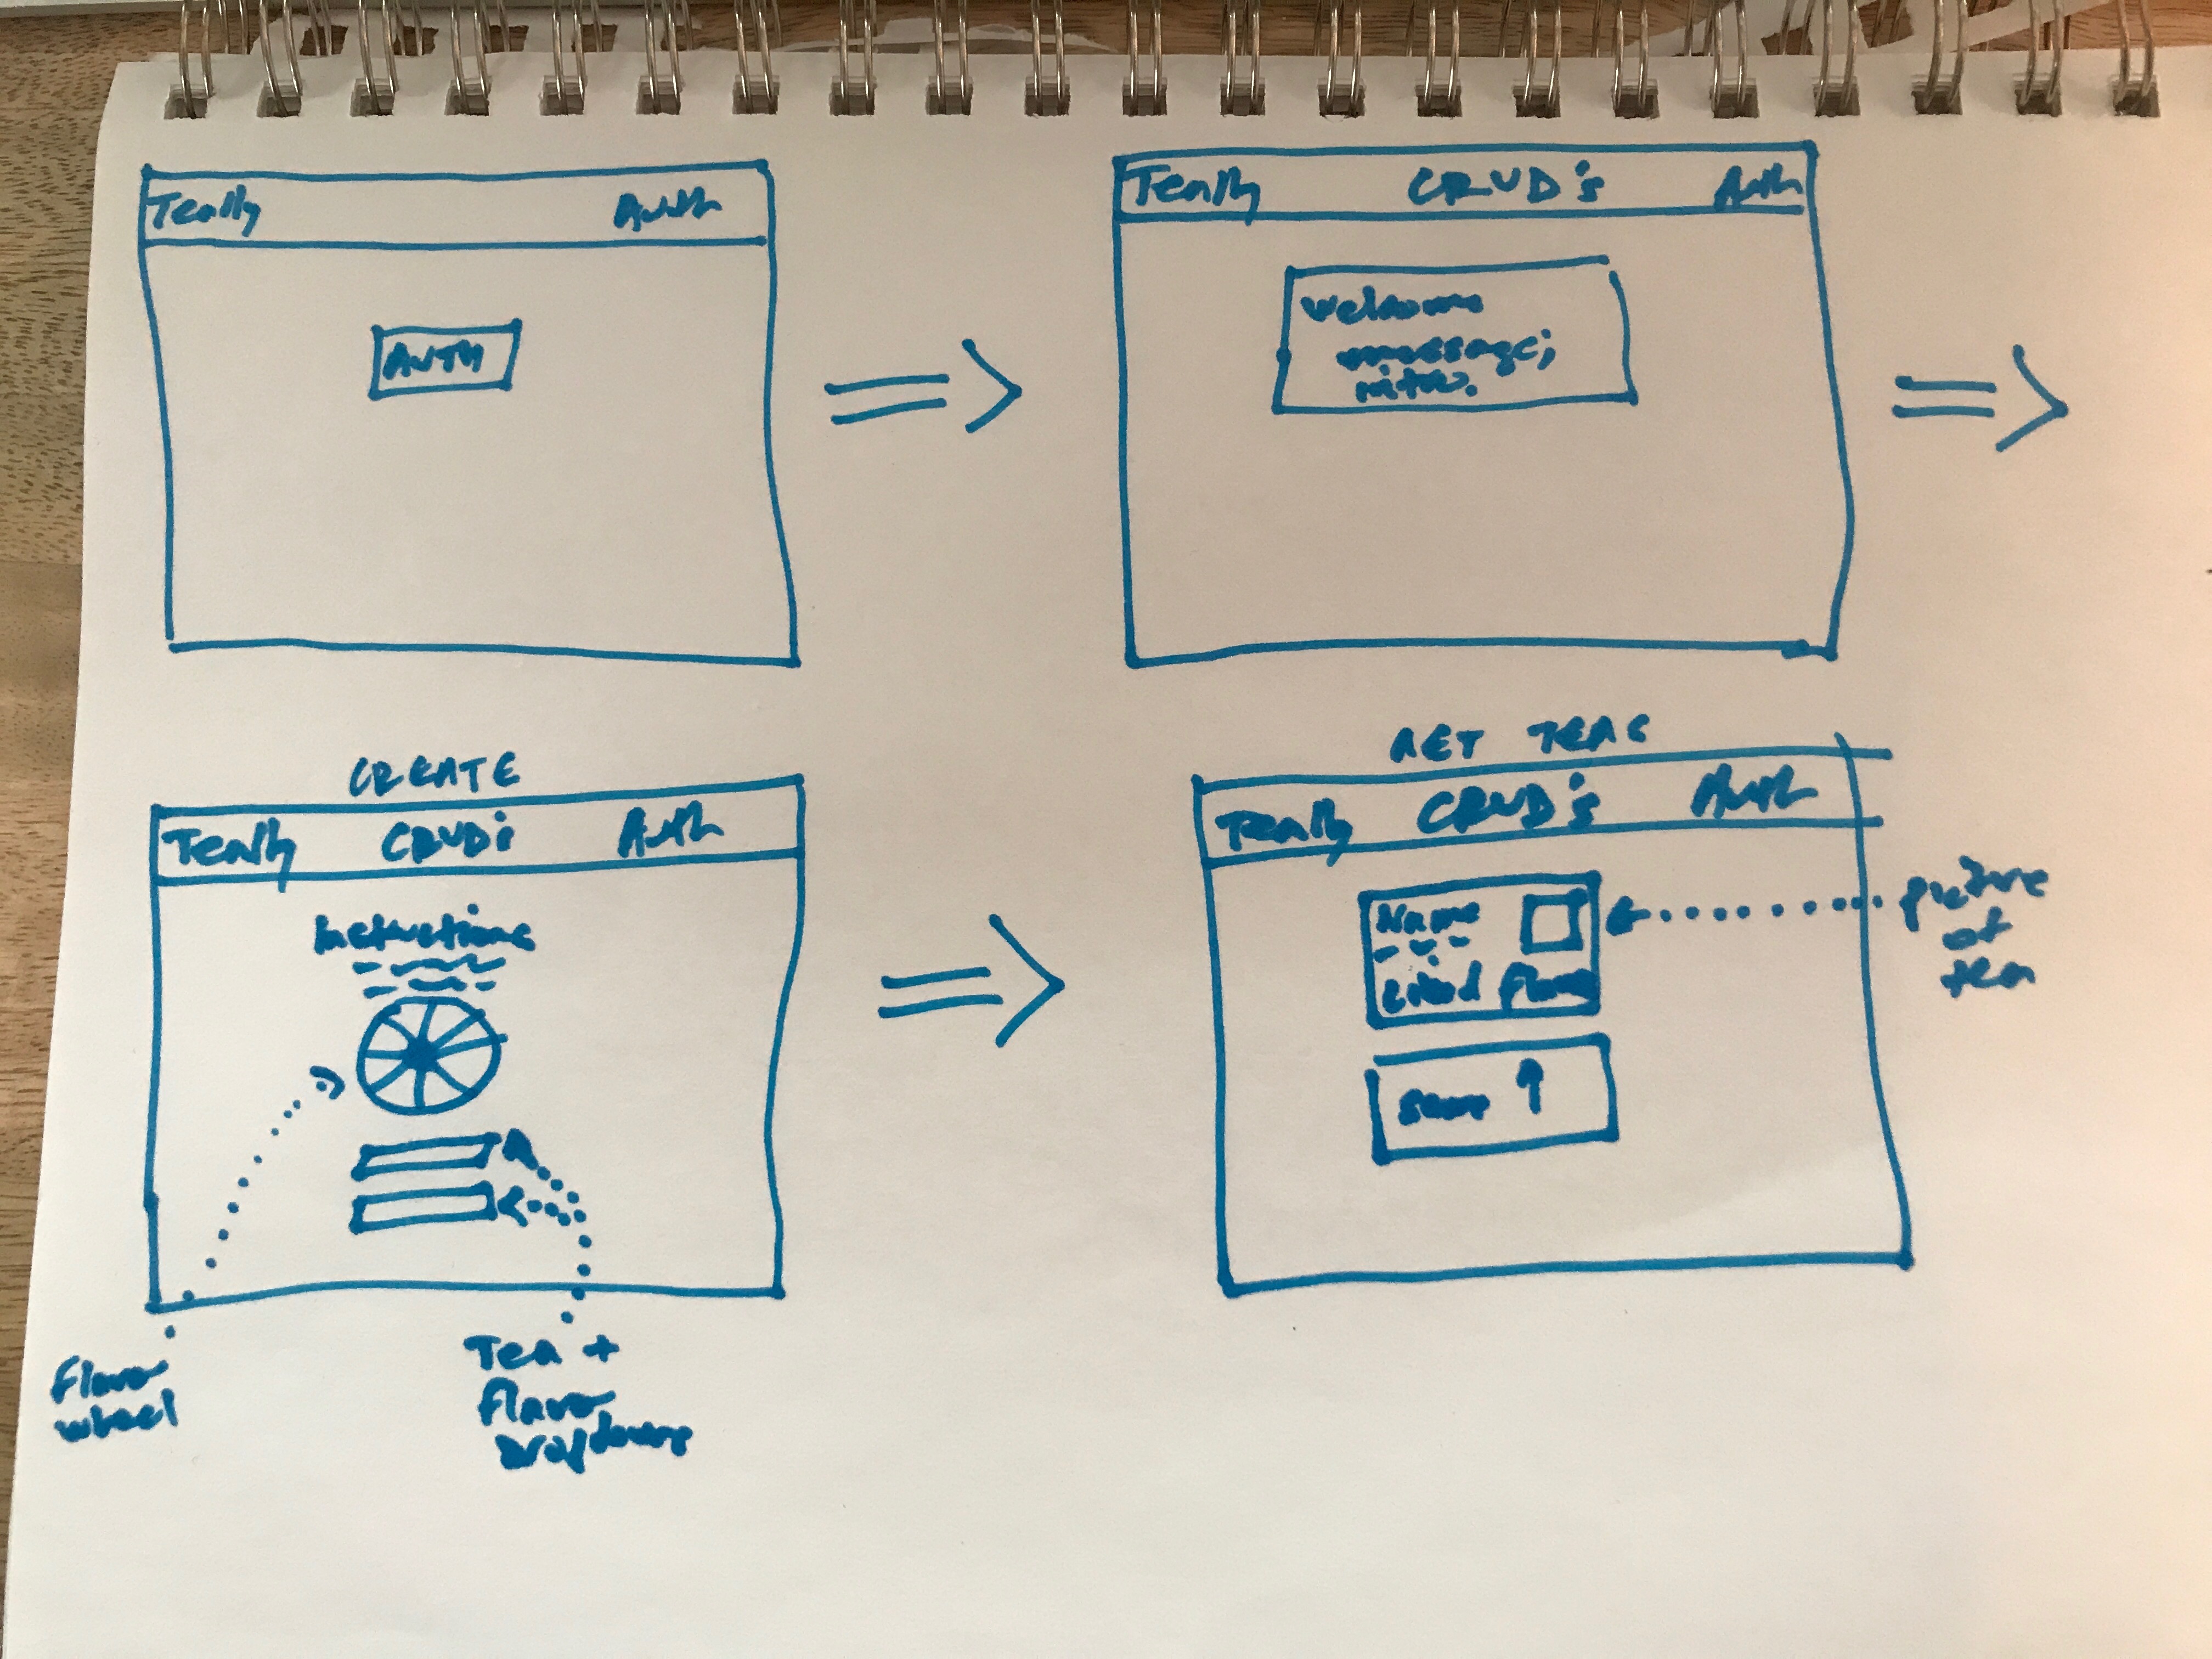 Teally Auth
AUTH
Teally CRUD's Auth
Welcome
message;
intro.
CREATE
Teally CRUD's Auth
Instructions
flavor
wheel
Tea +
flavor
Dropdowns
GET TEAS
Teally CRUD's Auth
Name
Listed flavor
same ↑
picture
of
tea